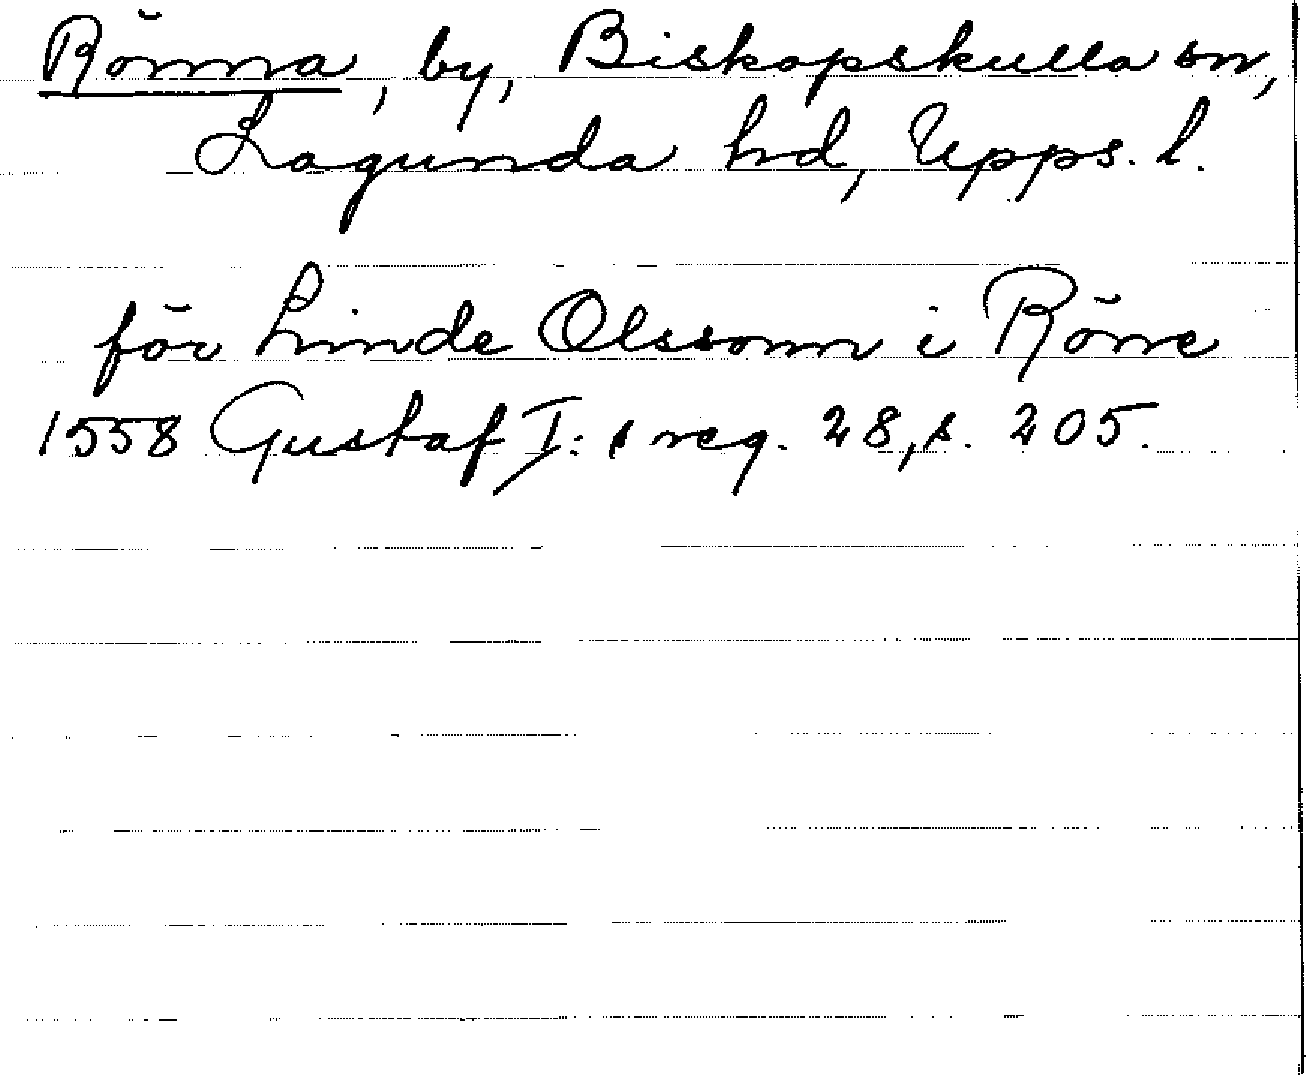 Rönna, by, Biskopskulla sn,
Lagunda hd, Upps. l.
för Linde Olssonn i Röne
1558 Gustaf I: s reg. 28, s. 205.